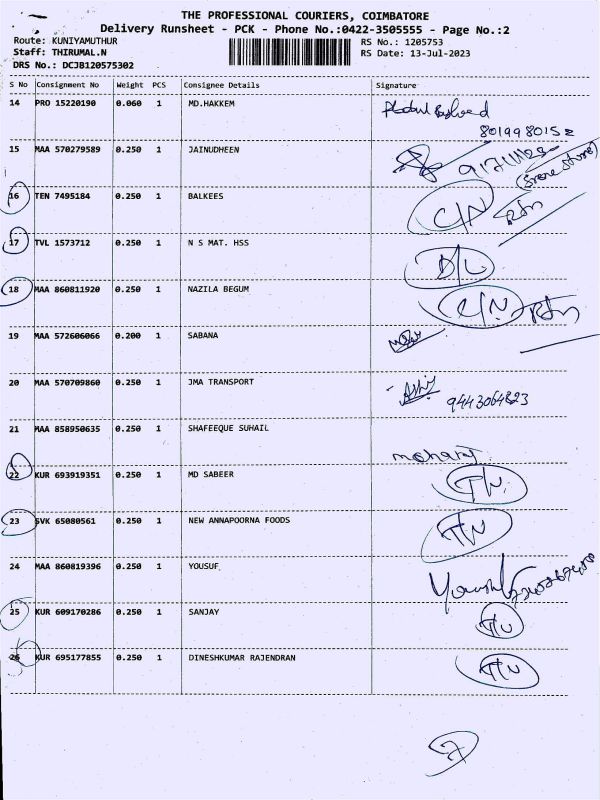 THE PROFESSIONAL COURIERS, COIMBATORE
Delivery Runsheet - PCK - Phone No.:0422-3505555 - Page No.:2
Route: KUNIYAMUTHUR RS No.: 1205753
Staff: THIRUMAL.N RS Date: 13-Jul-2023
DRS No.: DCJB120575302
S No Consignment No Weight PCS Consignee Details Signature
14 PRO 15220190 0.060 1 MD.HAKKEM
8019980152
15 MAA 570279589 0.250 1 JAINUDHEEN
16 TEN 7495184 0.250 1 BALKEES C/N Rtn
17 TVL 1573712 0.250 1 N S MAT. HSS D/L
18 MAA 860811920 0.250 1 NAZILA BEGUM C/N Rtn
19 MAA 572606066 0.200 1 SABANA
20 MAA 570709860 0.250 1 JMA TRANSPORT
9443064823
21 MAA 858950635 0.250 1 SHAFEEQUE SUHAIL
22 KUR 693919351 0.250 1 MD SABEER T/N
23 SVK 65080561 0.250 1 NEW ANNAPOORNA FOODS T/N
24 MAA 860819396 0.250 1 YOUSUF
25 KUR 609170286 0.250 1 SANJAY T/N
26 KUR 695177855 0.250 1 DINESHKUMAR RAJENDRAN T/N
7